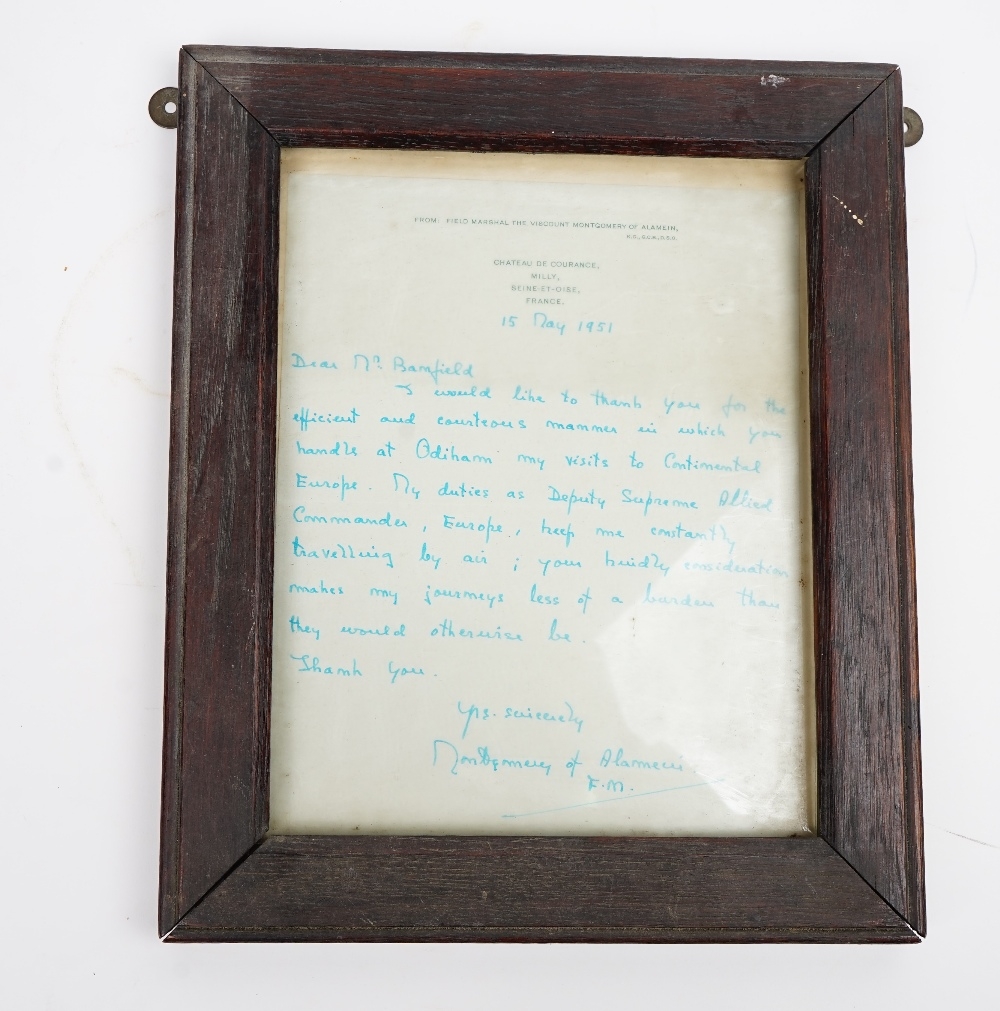 FROM: FIELD MARSHAL THE VISCOUNT MONTGOMERY OF ALAMEIN,
K.G., G.C.B., D.S.O.
CHATEAU DE COURANCE,
MILLY,
SEINE-ET-OISE,
FRANCE.
15 May 1951
Dear Mr. Bamfield
I would like to thank you for the
efficient and courteous manner in which you
handle at Odiham my visits to Continental
Europe. My duties as Deputy Supreme Allied
Commander, Europe, keep me constantly
travelling by air; your kindly consideration
makes my journeys less of a burden than
they would otherwise be.
Thank you.
Yrs. sincerely
Montgomery of Alamein
F.M.